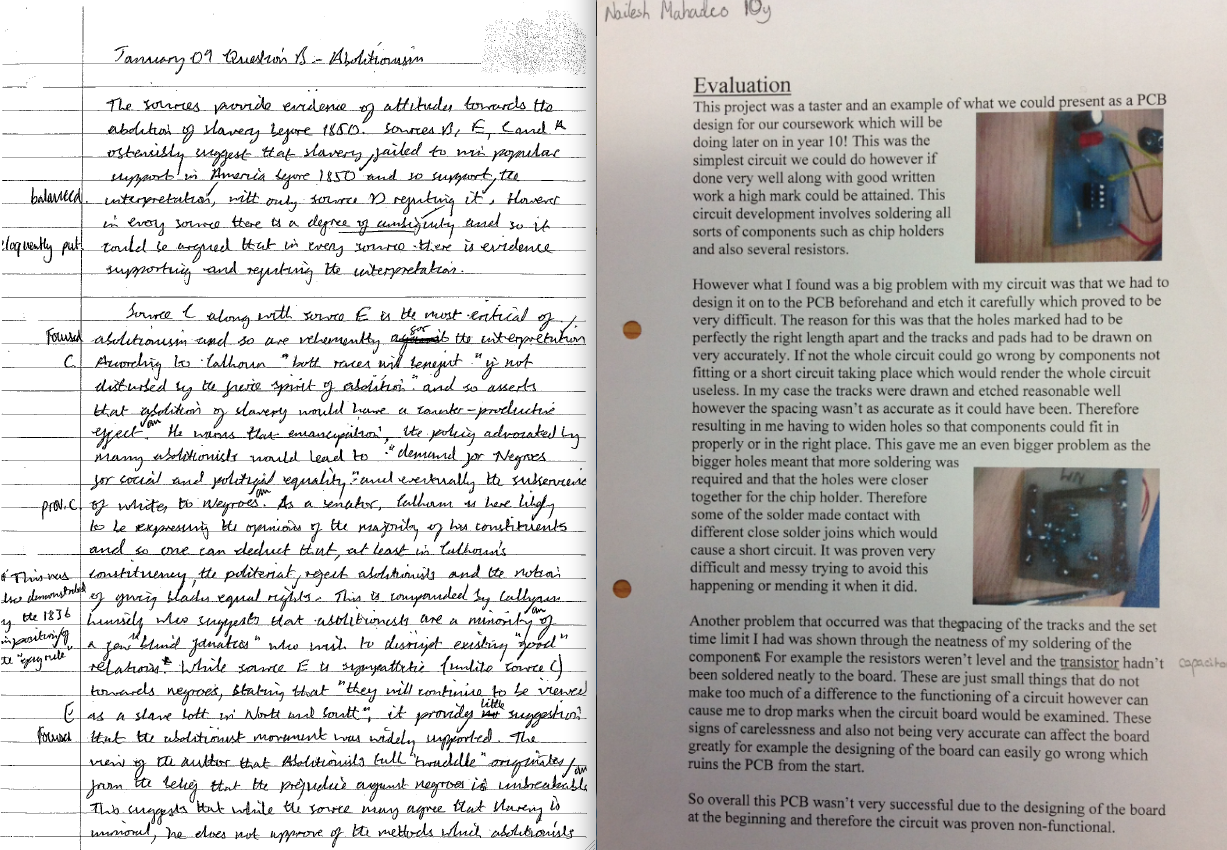 January 09 Question B - Abolitionism
The sources provide evidence of attitudes towards the
abolition of slavery before 1850. Sources B, E, C and A
ostensibly suggest that slavery failed to win popular
support in America before 1850 and so support the
balanced.
interpretation, with only source D refuting it. However
in every source there is a degree of ambiguity and so it
eloquently put
could be argued that in every source there is evidence
supporting and refuting the interpretation.
Source C along with source E is the most critical of
Focused
abolitionism and so are vehemently for the interpretation
C.
According to Calhoun "both races will benefit" "if not
disturbed by the fierce spirit of abolition" and so asserts
that abolition of slavery would have a counter-productive
effect. He warns that emancipation, the policy advocated by
many abolitionists would lead to "demand for Negroes
for social and political equality" and eventually the subservience
prov. C.
of whites to Negroes. As a senator, Calhoun is here likely
to be expressing the opinions of the majority of his constituents
and so one can deduct that, at least in Calhoun's
constituency, the politeriat, reject abolitionists and the notion
* This was
also demonstrated
of giving blacks equal rights. This is compounded by Calhoun
by the 1836
himself who suggests that abolitionists are a minority of
imposition of
a few "blind fanatics" who wish to disrupt existing "good"
the "gag rule"
relations.* While source E is sympathetic (unlike source C)
towards negroes, stating that "they will continue to be viewed
E
as a slave both in North and South", it provides little suggestion
Focused
that the abolitionist movement was widely supported. The
view of the author that Abolitionists full "twaddle" originates
from the belief that the prejudice against negroes is unbreakable
This suggests that while the source may agree that slavery is
immoral, he does not approve of the methods which abolitionists
Nailesh Mahadeo 10y
Evaluation
This project was a taster and an example of what we could present as a PCB
design for our coursework which will be
doing later on in year 10! This was the
simplest circuit we could do however if
done very well along with good written
work a high mark could be attained. This
circuit development involves soldering all
sorts of components such as chip holders
and also several resistors.
However what I found was a big problem with my circuit was that we had to
design it on to the PCB beforehand and etch it carefully which proved to be
very difficult. The reason for this was that the holes marked had to be
perfectly the right length apart and the tracks and pads had to be drawn on
very accurately. If not the whole circuit could go wrong by components not
fitting or a short circuit taking place which would render the whole circuit
useless. In my case the tracks were drawn and etched reasonable well
however the spacing wasn't as accurate as it could have been. Therefore
resulting in me having to widen holes so that components could fit in
properly or in the right place. This gave me an even bigger problem as the
bigger holes meant that more soldering was
required and that the holes were closer
together for the chip holder. Therefore
some of the solder made contact with
different close solder joins which would
cause a short circuit. It was proven very
difficult and messy trying to avoid this
happening or mending it when it did.
Another problem that occurred was that the spacing of the tracks and the set
time limit I had was shown through the neatness of my soldering of the
components. For example the resistors weren't level and the transistor hadn't
capacitor
been soldered neatly to the board. These are just small things that do not
make too much of a difference to the functioning of a circuit however can
cause me to drop marks when the circuit board would be examined. These
signs of carelessness and also not being very accurate can affect the board
greatly for example the designing of the board can easily go wrong which
ruins the PCB from the start.
So overall this PCB wasn't very successful due to the designing of the board
at the beginning and therefore the circuit was proven non-functional.